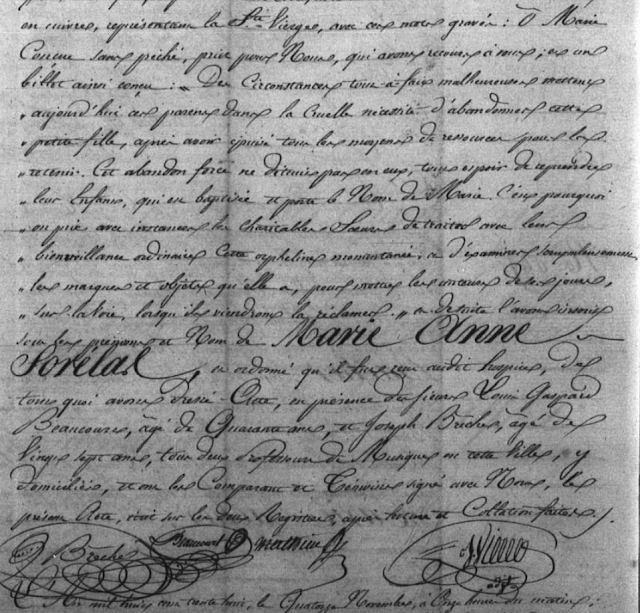 en cuivre, représentant la Ste Vierge, avec ces mots gravés : Ô Marie
Conçue sans péché, priez pour Nous, qui avons recours à vous ; et un
billet ainsi conçu : „ Des Circonstances tout-à-fait malheureuses mettent
„ aujourd'hui ces parens dans la Cruelle nécessité d'abandonner cette
„ petite fille, après avoir épuisé tous les moyens de ressources pour la
„ retenir. Cet abandon forcé ne détruit pas en eux, tout espoir de reprendre
„ leur Enfant, qui est baptisée et porte le Nom de Marie. C'est pourquoi
„ on prie avec instances les charitables Sœurs de traiter avec leur
„ bienveillance ordinaire Cette orpheline momentanée, et d'examiner scrupuleusement
„ les marques et objets qu'elle a, pour mettre les auteurs de ses jours,
„ sur la voie, lorsqu'ils viendront la réclamer. „ en suite l'avons inscrite
sous les prénoms et Nom de Marie Anne
Sorélas, et ordonné qu'il fut reçu audit hospice, De
tout quoi avons Dressé Acte, en présence des sieurs Louis Gaspard
Beaucourt, âgé de Quarante ans, et Joseph Broche, âgé de
Vingt sept ans, tous deux Professeurs de Musique en cette Ville, y
domiciliés, et ont les Comparant et Témoins signé avec Nous, le
présent Acte, écrit sur les deux Registres, après lecture et Collation faites ./.
Broche Beaucourt
L'An mil huit cent trente huit, le Quatorze Novembre, à Onze heures du matin